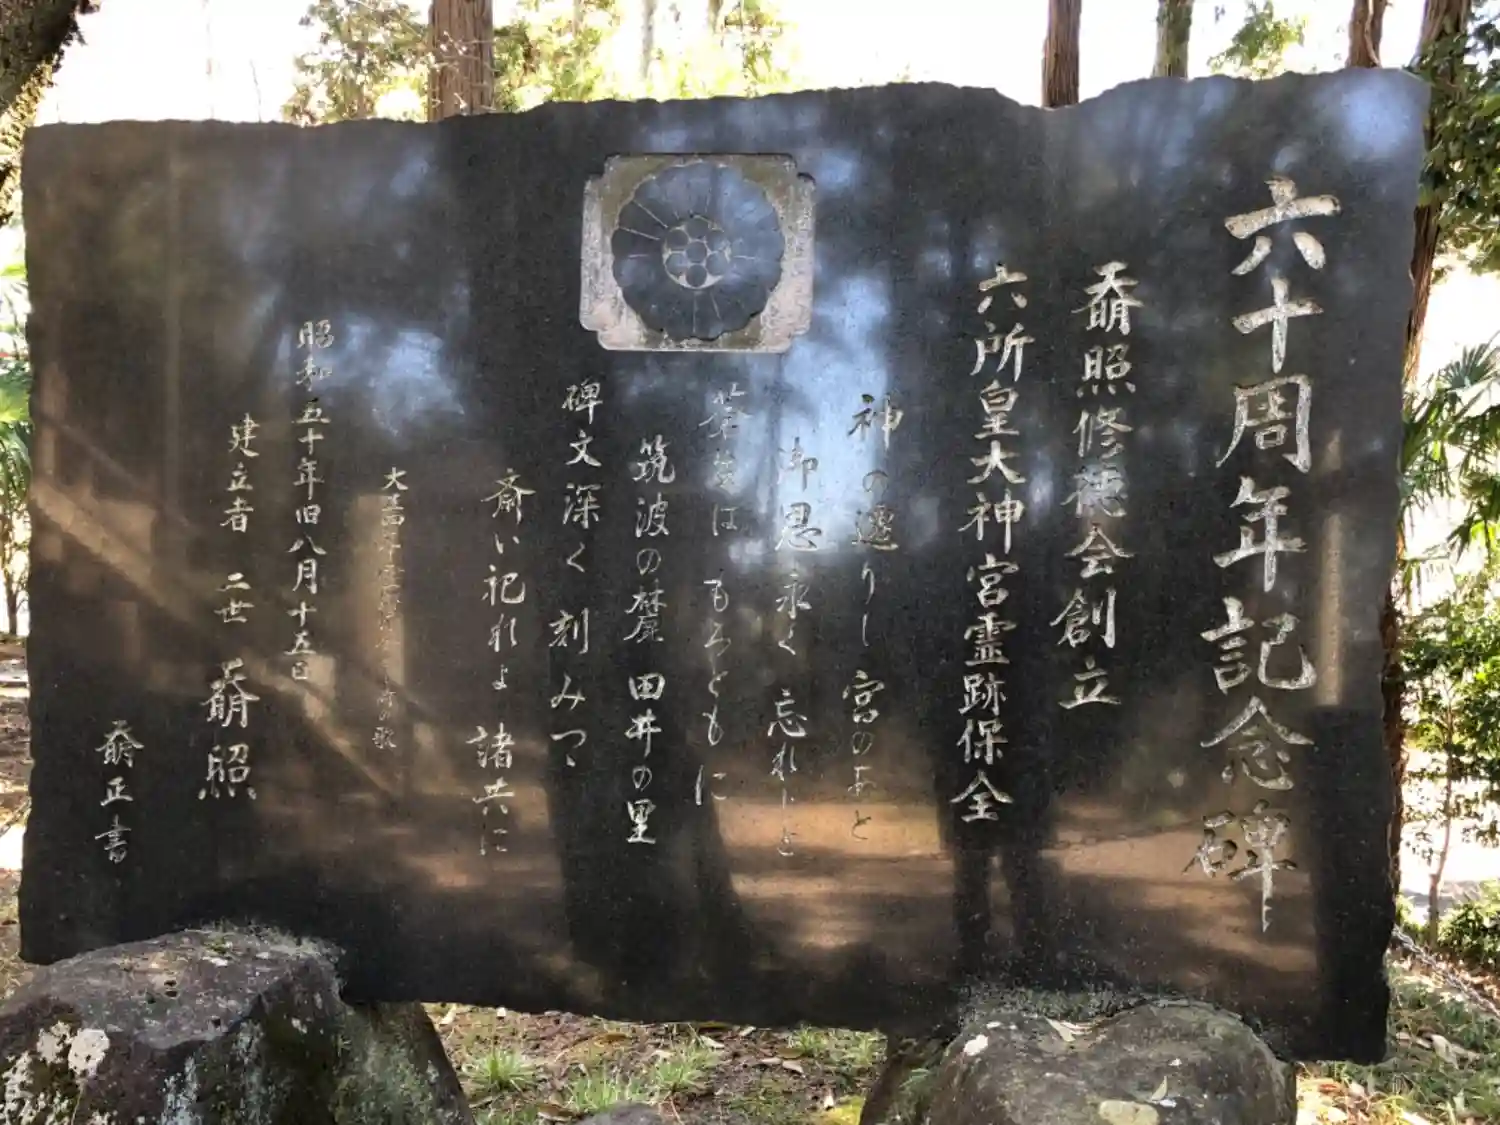 六十周年記念碑
奣照修徳会創立
六所皇大神宮霊跡保全
神の遷りし 宮のあと
御恩永く 忘れじと
は もろともに
筑波の麓 田井の里
碑文深く 刻みつゝ
斎い祀れよ 諸共に
の歌
昭和五十年旧八月十五日
建立者 二世 奣照
奣正書